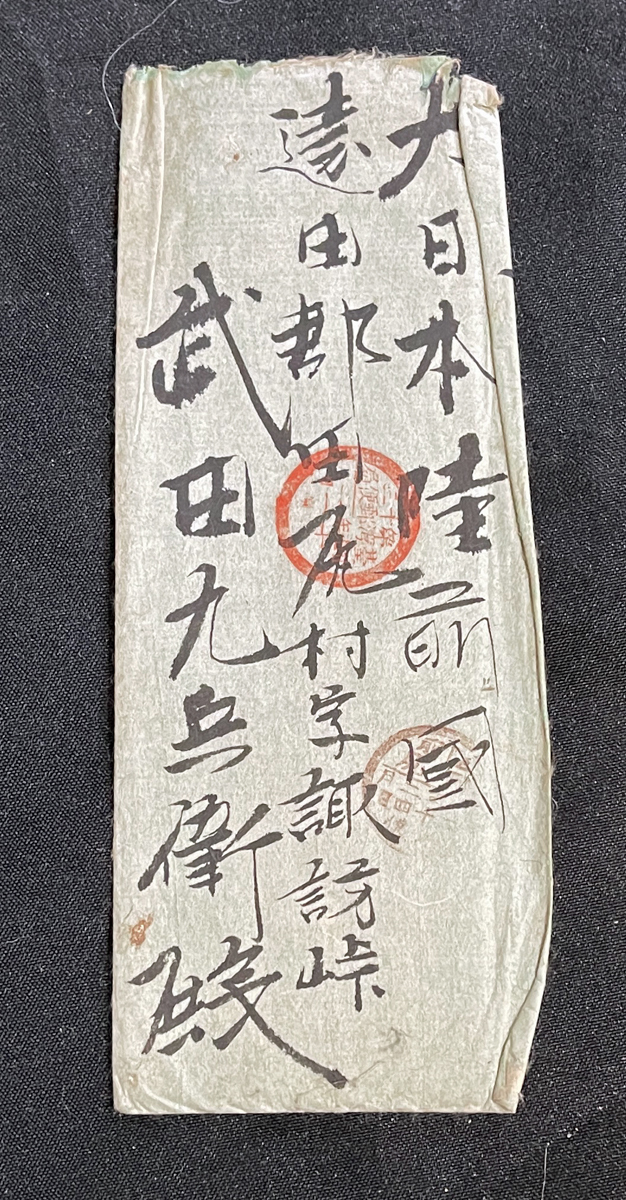 大日本陸前國
遠田郡田尻村字諏訪峠
武田九兵衛殿